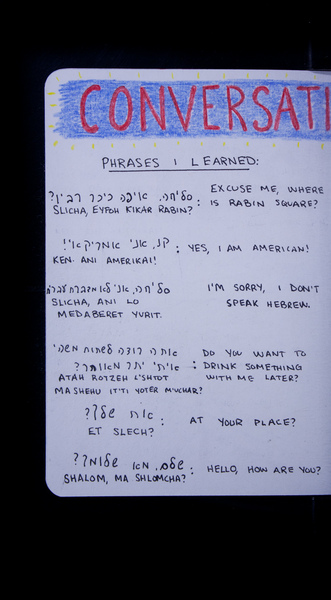 CONVERSATI
PHRASES I LEARNED:
סליחה, איפה כיכר רבין? :
SLICHA, EYFOH KIKAR RABIN?
EXCUSE ME, WHERE
IS RABIN SQUARE?
כן, אני אמריקאי! :
KEN. ANI AMERIKAI!
YES, I AM AMERICAN!
סליחה, אני לא מדברת עברית
SLICHA, ANI LO
MEDABERET YVRIT.
I'M SORRY, I DON'T
SPEAK HEBREW.
אתה רוצה לשתות משהי
איתי יתר מאוחר? :
ATAH ROTZEH L'SHTOT
MASHEHU IT'TI YOTER M'UCHAR?
DO YOU WANT TO
DRINK SOMETHING
WITH ME LATER?
את שלך? :
ET SLECH?
AT YOUR PLACE?
שלום, מא שלומך? :
SHALOM, MA SHLOMCHA?
HELLO, HOW ARE YOU?